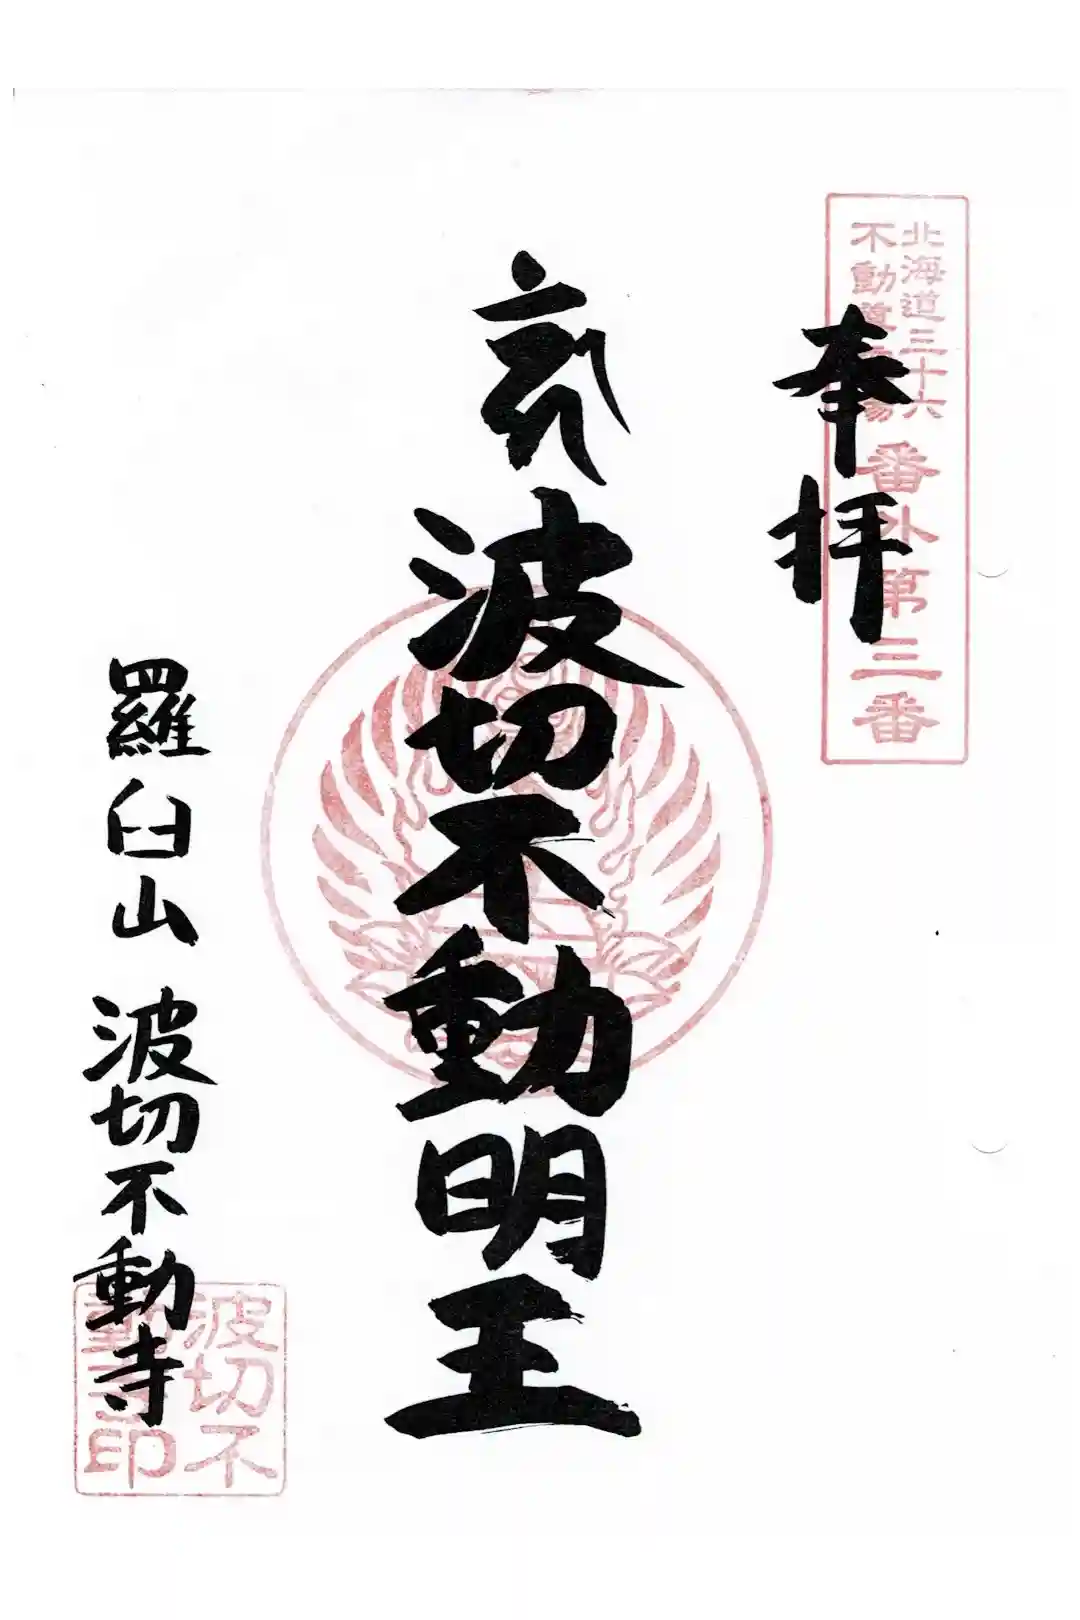 北海道三十六
不動尊霊場
番外第三番
奉拝
波切不動明王
羅臼山 波切不動寺
波切不
動寺印